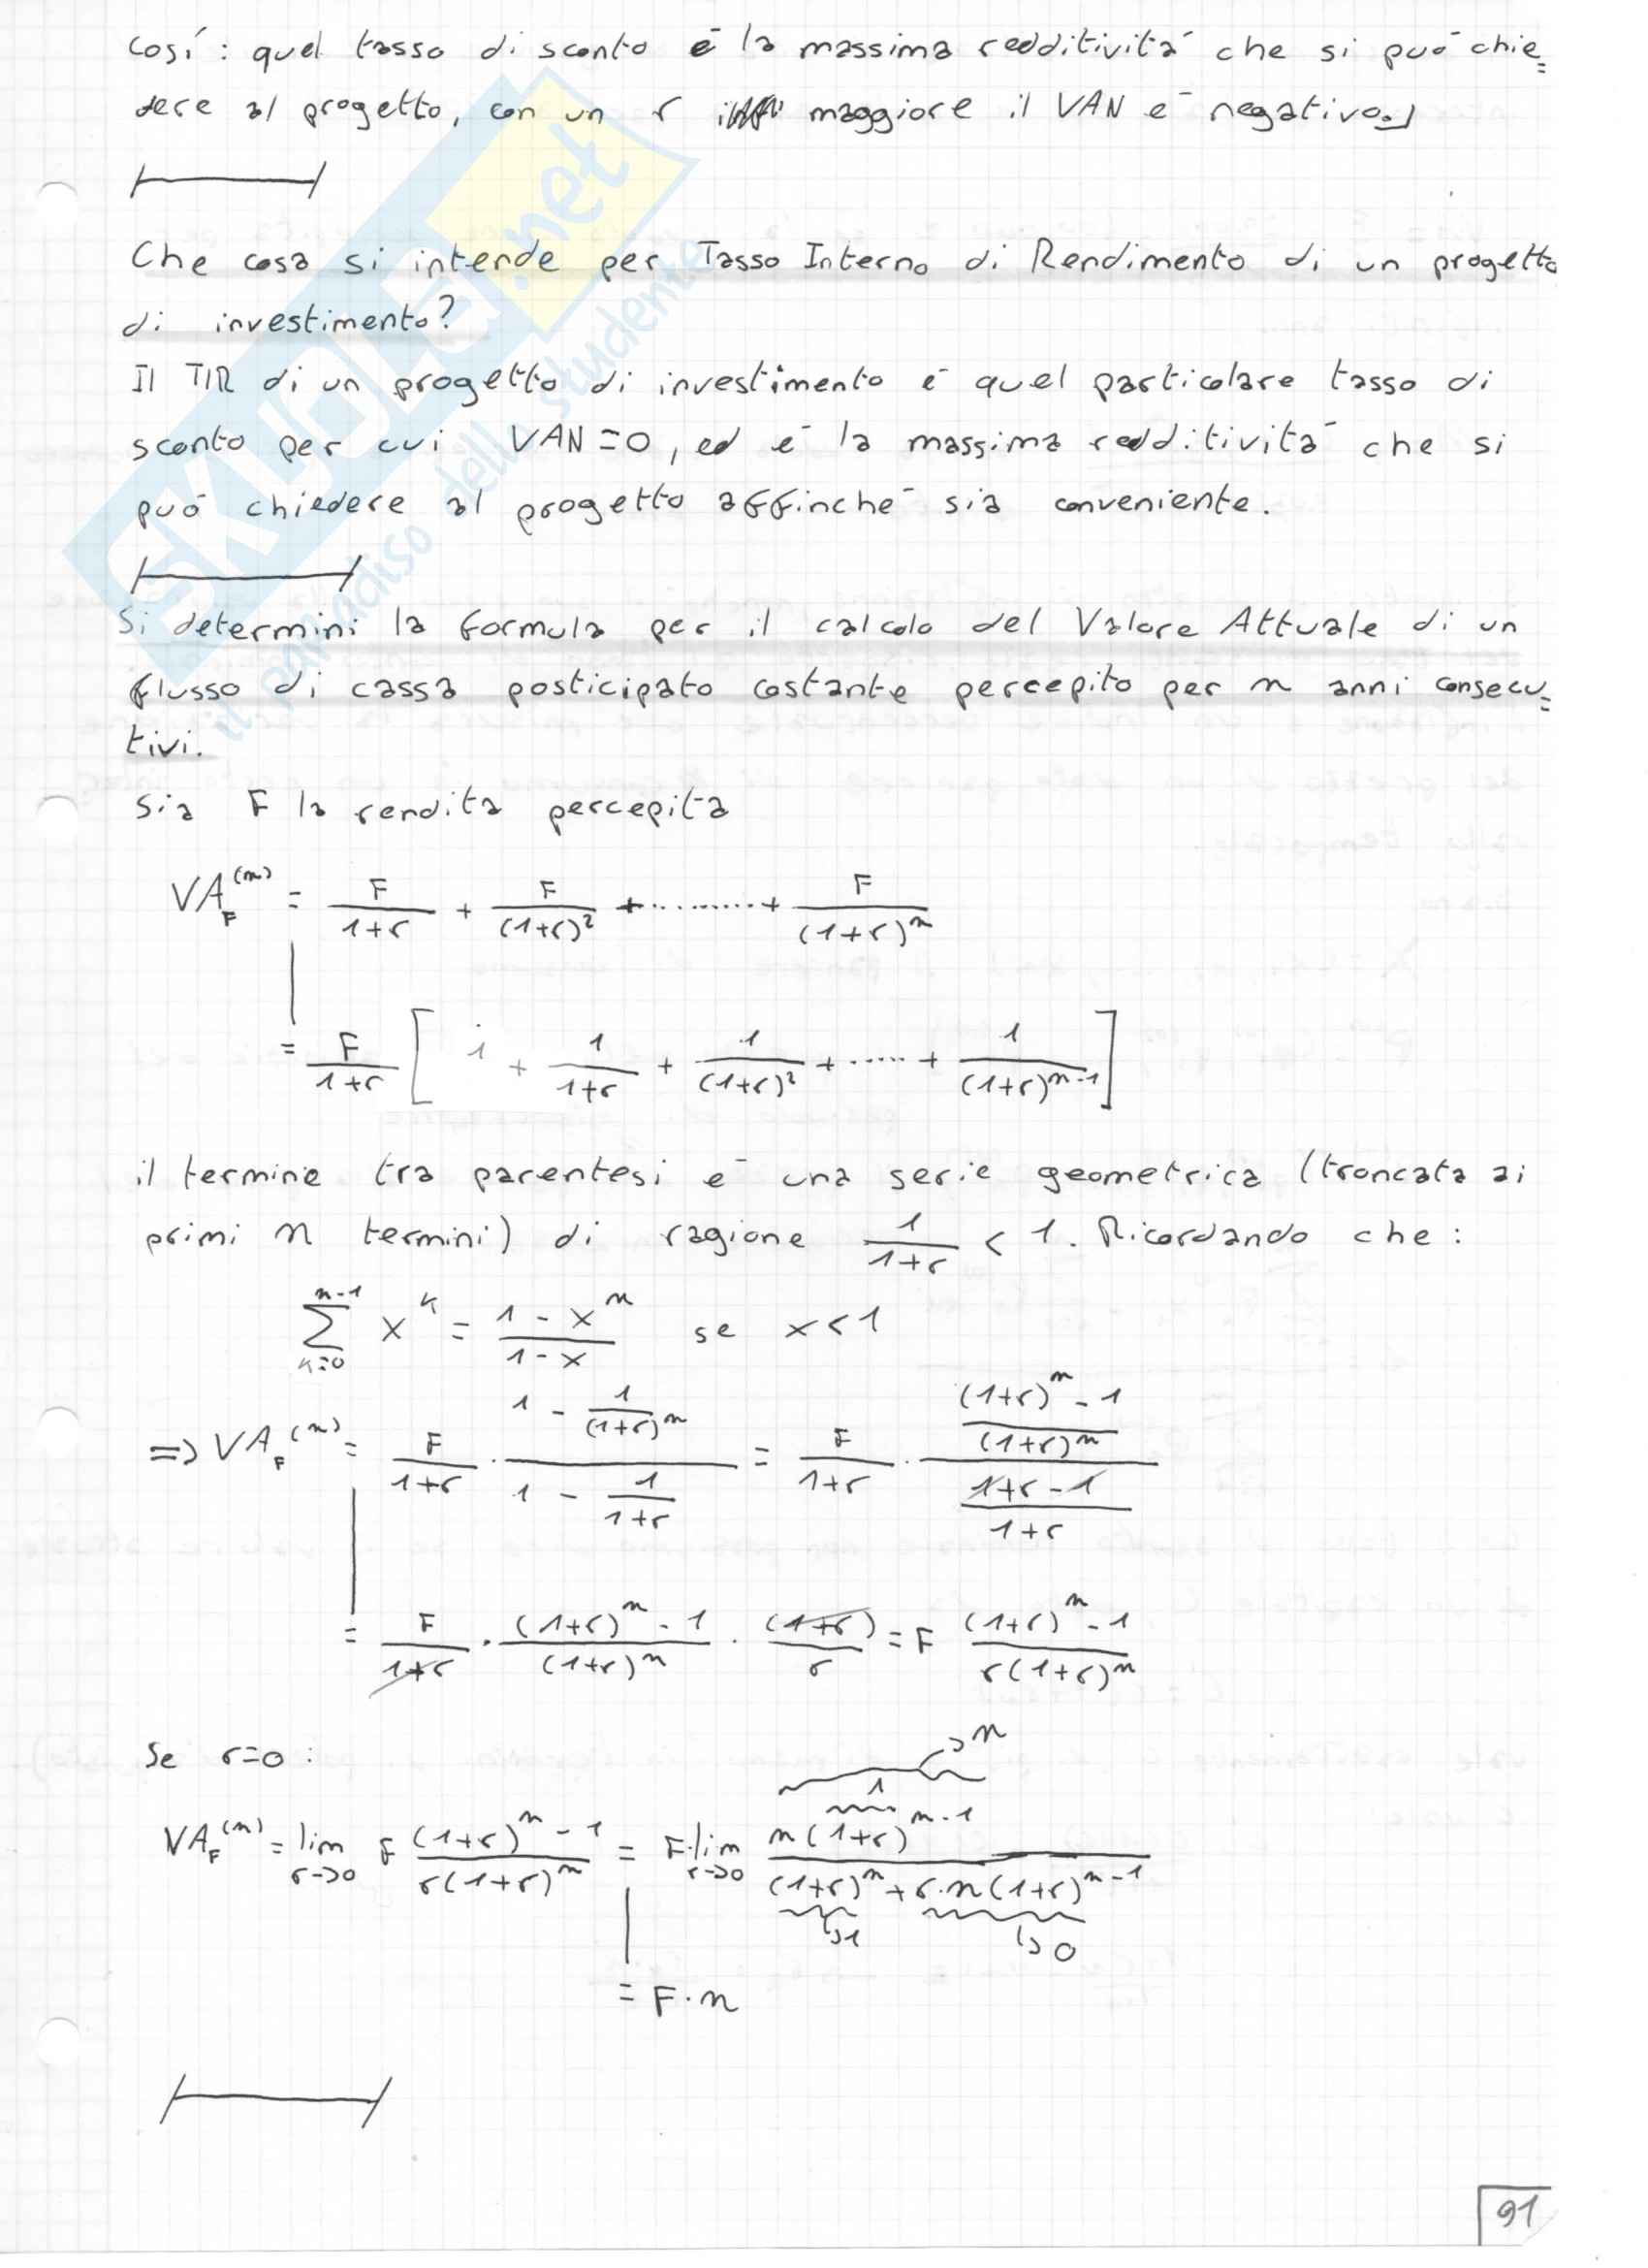 così: quel tasso di sconto è la massima redditività che si può chie=
dere al progetto, con un r maggiore il VAN è negativo.]
Che cosa si intende per Tasso Interno di Rendimento di un progetto
di investimento?
Il TIR di un progetto di investimento è quel particolare tasso di
sconto per cui VAN=0, ed è la massima redditività che si
può chiedere al progetto affinché sia conveniente.
Si determini la formula per il calcolo del Valore Attuale di un
flusso di cassa posticipato costante percepito per n anni consecu=
tivi.
Sia F la rendita percepita
VA_F^(n) = F/(1+r) + F/(1+r)^2 + ......... + F/(1+r)^n
= F/(1+r) [ 1 + 1/(1+r) + 1/(1+r)^2 + ..... + 1/(1+r)^(n-1) ]
il termine tra parentesi è una serie geometrica (troncata ai
primi n termini) di ragione 1/(1+r) < 1. Ricordando che:
∑_{k=0}^{n-1} x^k = (1-x^n)/(1-x) se x<1
=> VA_F^(n) = F/(1+r) · (1 - 1/(1+r)^n)/(1 - 1/(1+r)) = F/(1+r) · (((1+r)^n - 1)/(1+r)^n)/((1+r-1)/(1+r))
= F/(1+r) · ((1+r)^n - 1)/(1+r)^n · (1+r)/r = F ((1+r)^n - 1)/(r(1+r)^n)
Se r=0:
->n
1
VA_F^(n) = lim_{r->0} F ((1+r)^n - 1)/(r(1+r)^n) = F·lim_{r->0} n(1+r)^(n-1)/((1+r)^n + r·n(1+r)^(n-1))
->1 ->0
= F·n
91
SKUOLA.net
il paradiso dello studente